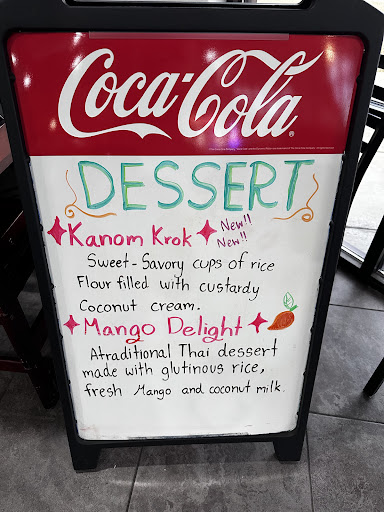 Coca-Cola
DESSERT
Kanom Krok New!!
New!!
Sweet-Savory cups of rice
Flour filled with custardy
Coconut cream.
Mango Delight
Atraditional Thai dessert
made with glutinous rice,
fresh Mango and coconut milk.